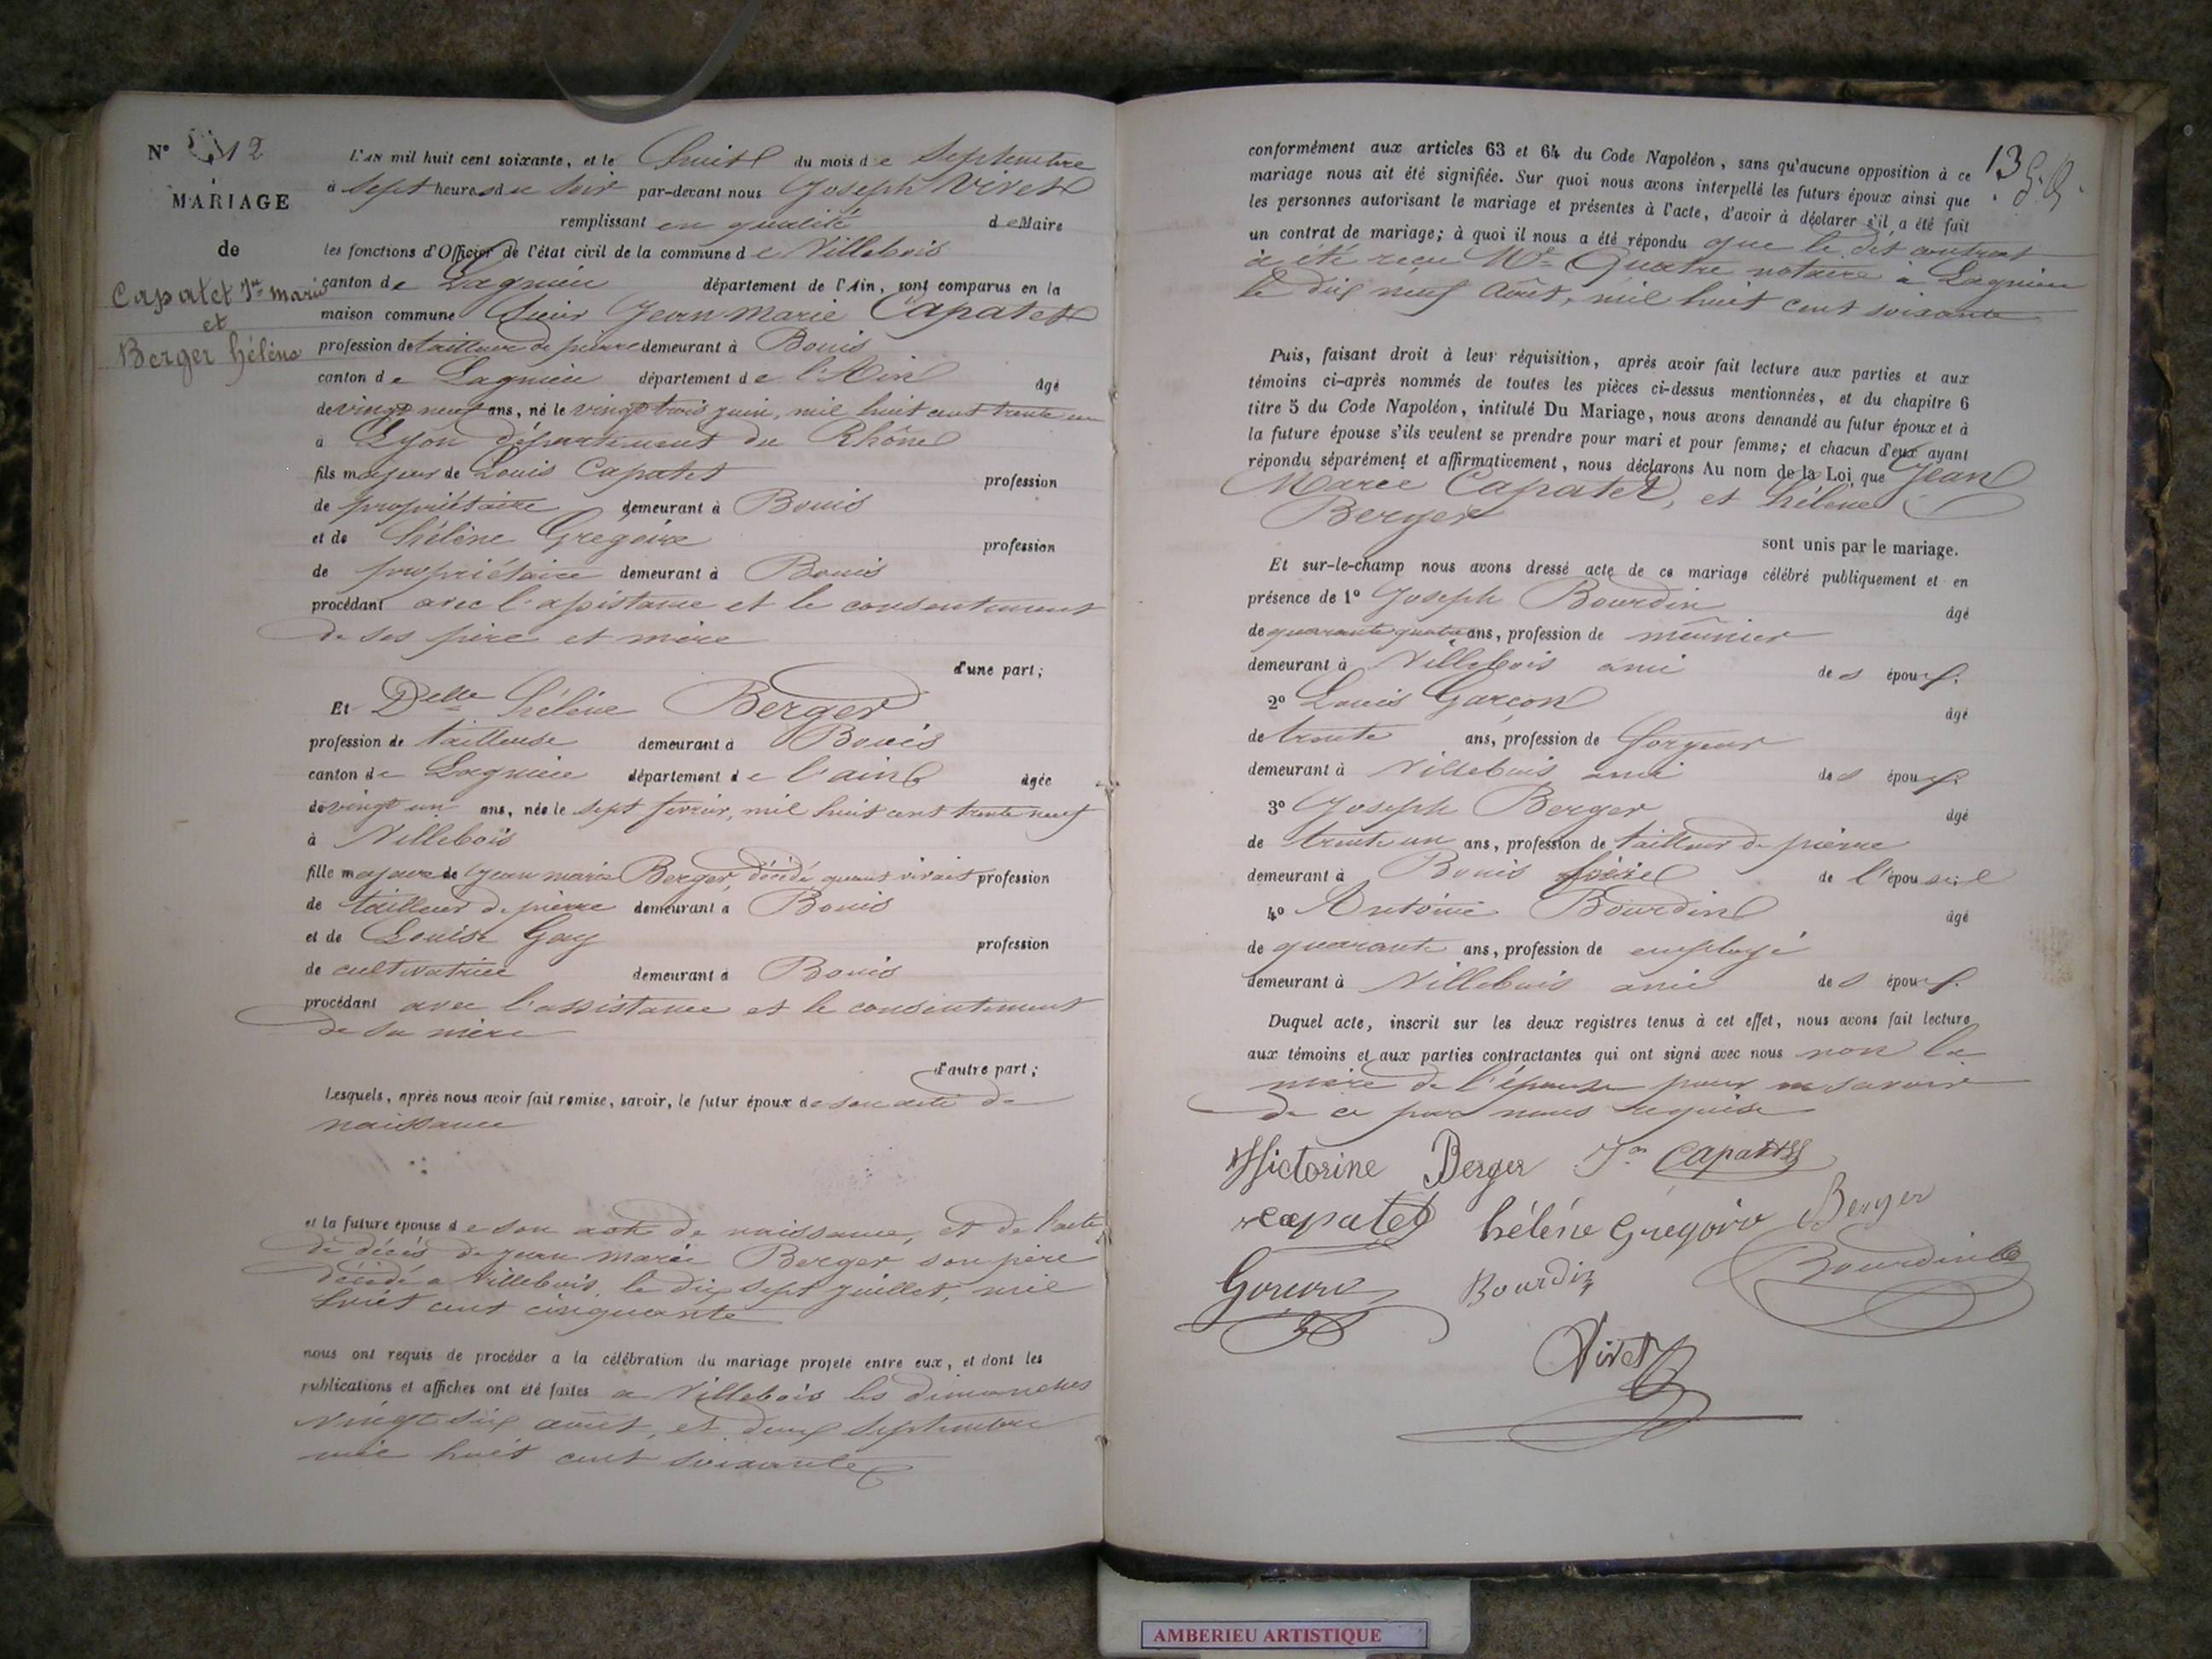 N° 12
MARIAGE
de
Capatet Jn marie
et
Berger hélène
L'AN mil huit cent soixante, et le huit du mois de Septembre
à sept heures du soir par-devant nous Joseph Vivet
remplissant en qualité de Maire
les fonctions d'Officier de l'état civil de la commune de Villebois
canton de Lagnieu département de l'Ain, sont comparus en la
maison commune Sieur Jean Marie Capatet
profession de tailleur de pierre demeurant à Bouis
canton de Lagnieu département de l'Ain âgé
de vingt neuf ans, né le vingt trois juin, mil huit cent trente un
à Lyon département du Rhône
fils majeur de Louis Capatet profession
de propriétaire demeurant à Bouis
et de hélène Gregoire profession
de propriétaire demeurant à Bouis
procédant avec l'assistance et le consentement
de ses père et mère
d'une part;
Et Delle hélène Berger
profession de tailleuse demeurant à Bouis
canton de Lagnieu département de l'ain âgée
de vingt un ans, née le sept fevrier, mil huit cent trente neuf
à Villebois
fille majeure de Jean marie Berger, décédé quant vivait profession
de tailleur de pierre demeurant à Bouis
et de Louise Gay profession
de cultivatrice demeurant à Bouis
procédant avec l'assistance et le consentement
de sa mère
d'autre part;
Lesquels, après nous avoir fait remise, savoir, le futur époux de son acte de
naissance
et la future épouse de son acte de naissance, et de l'acte
de décès de Jean Marie Berger son père
décédé a Villebois, le dix sept juillet, mil
huit cent cinquante
nous ont requis de procéder à la célébration du mariage projeté entre eux, et dont les
publications et affiches ont été faites a Villebois les dimanches
vingt six aout, et deux Septembre
mil huit cent soixante
13
conformément aux articles 63 et 64 du Code Napoléon, sans qu'aucune opposition à ce
mariage nous ait été signifiée. Sur quoi nous avons interpellé les futurs époux ainsi que
les personnes autorisant le mariage et présentes à l'acte, d'avoir à déclarer s'il a été fait
un contrat de mariage; à quoi il nous a été répondu que le dit contrat
a été reçu Me Quatre notaire à Lagnieu
le dix neuf Août, mil huit cent soixante
Puis, faisant droit à leur réquisition, après avoir fait lecture aux parties et aux
témoins ci-après nommés de toutes les pièces ci-dessus mentionnées, et du chapitre 6
titre 5 du Code Napoléon, intitulé Du Mariage, nous avons demandé au futur époux et à
la future épouse s'ils veulent se prendre pour mari et pour femme; et chacun d'eux ayant
répondu séparément et affirmativement, nous déclarons Au nom de la Loi, que Jean
Marie Capatet, et hélène
Berger
sont unis par le mariage.
Et sur-le-champ nous avons dressé acte de ce mariage célébré publiquement et en
présence de 1° Joseph Bourdin âgé
de quarante quatre ans, profession de meûnier
demeurant à Villebois ami des époux.
2° Louis Garcon âgé
de trente ans, profession de forgeur
demeurant à Villebois ami des époux.
3° Joseph Berger âgé
de trente un ans, profession de tailleur de pierre
demeurant à Bouis frère de l'épouse
4° Antoine Bourdin âgé
de quarante ans, profession de employé
demeurant à Villebois ami des époux.
Duquel acte, inscrit sur les deux registres tenus à cet effet, nous avons fait lecture
aux témoins et aux parties contractantes qui ont signé avec nous non la
mère de l'épouse pour ne savoir
de ce par nous requise
Victorine Berger Jn Capatet
Capatet hélène Gregoire Berger
Bourdin
Vivet
AMBERIEU ARTISTIQUE